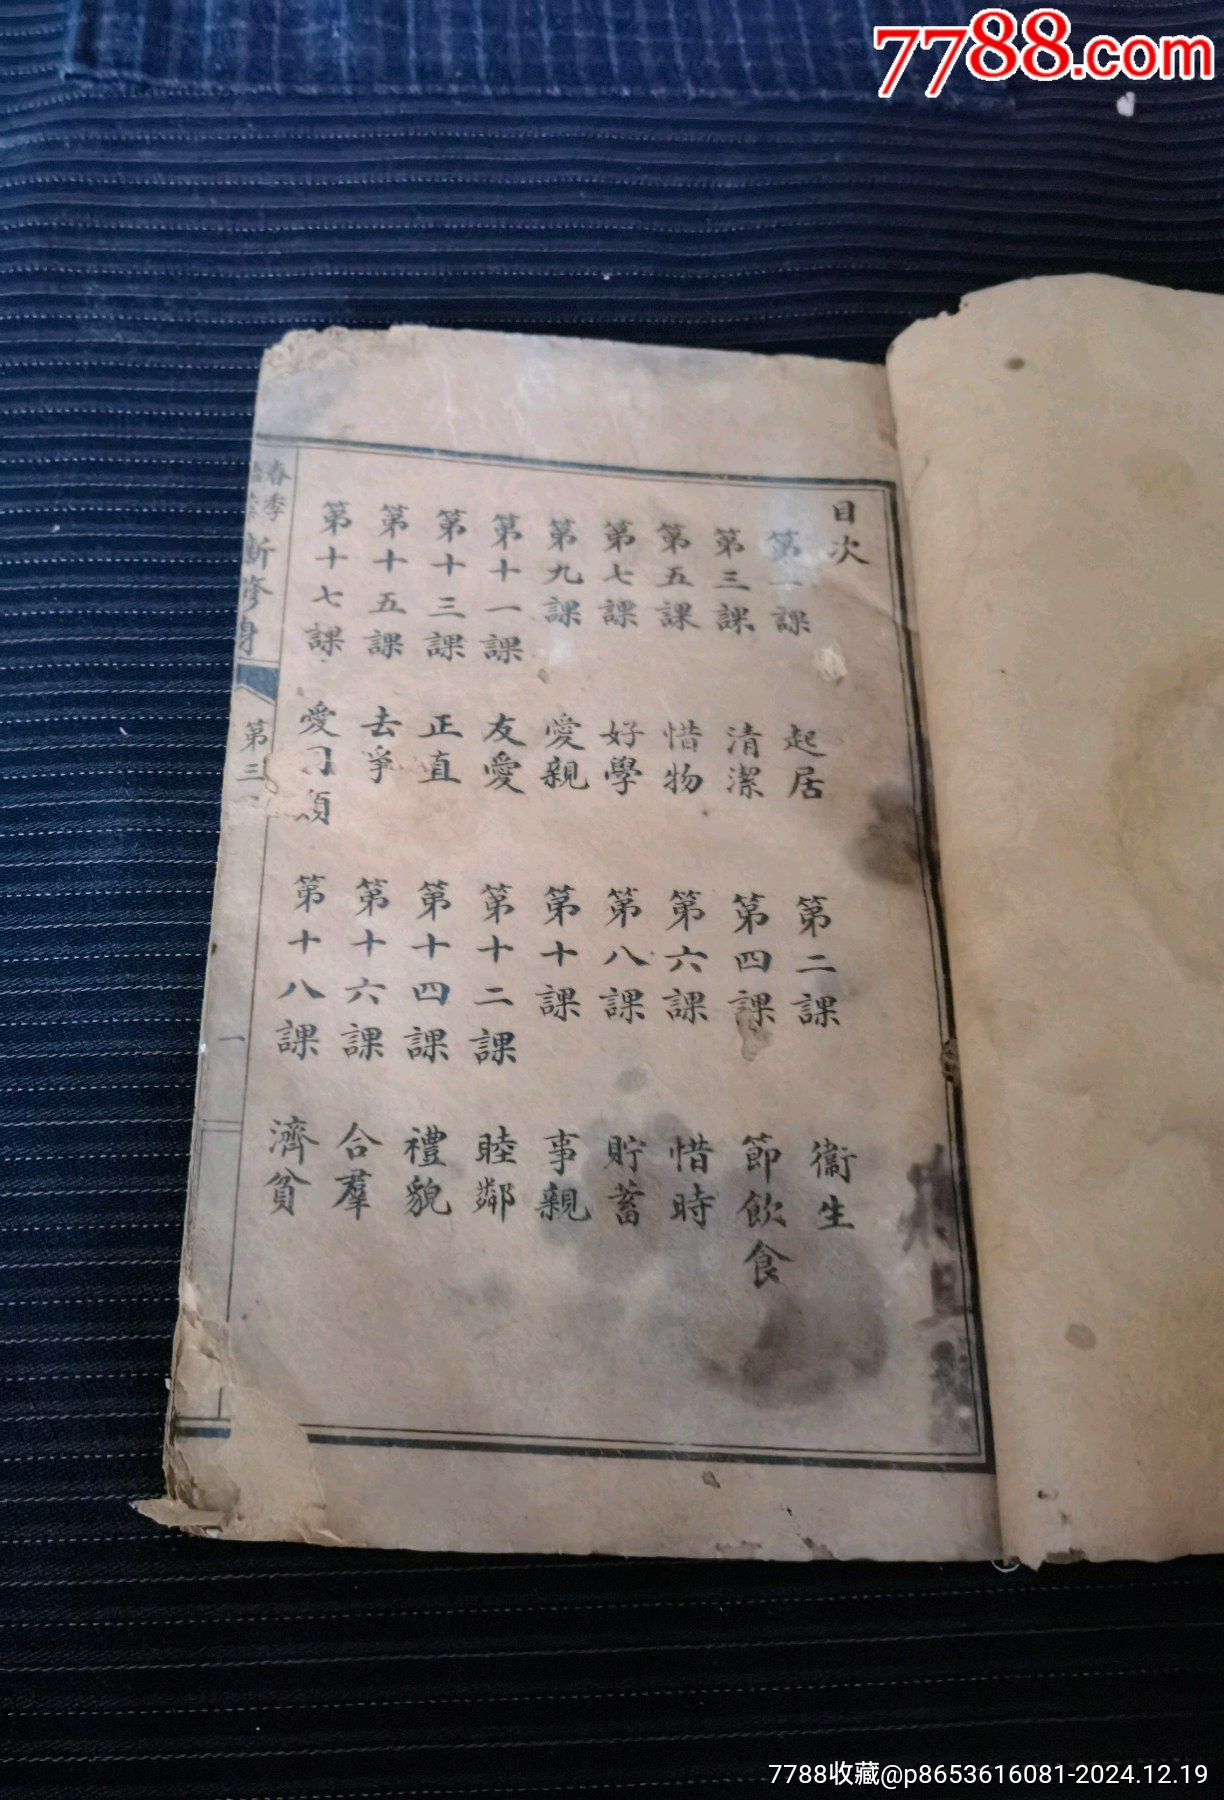 7788.com
目次
第一課 起居 第二課 衞生
第三課 清潔 第四課 節飲食
第五課 惜物 第六課 惜時
第七課 好學 第八課 貯蓄
第九課 愛親 第十課 事親
第十一課 友愛 第十二課 睦鄰
第十三課 正直 第十四課 禮貌
第十五課 去爭 第十六課 合羣
第十七課 愛 第十八課 濟貧
春季
新修身
第三
一
7788收藏@p8653616081-2024.12.19